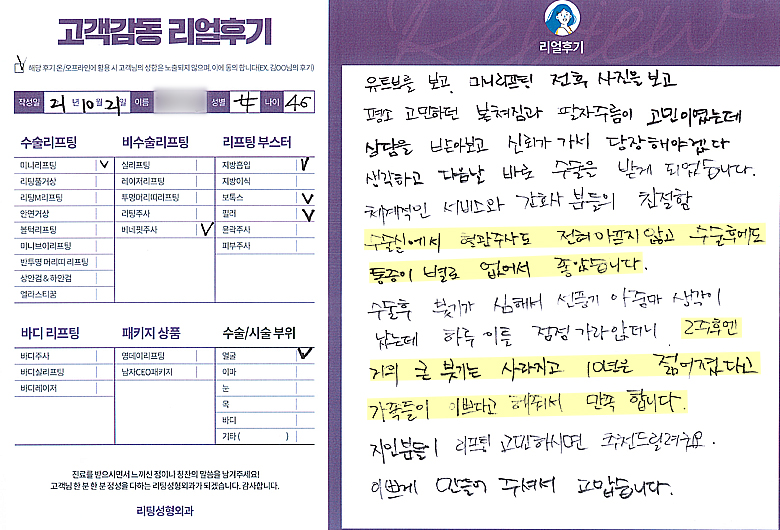 고객감동 리얼후기
해당 후기 온/오프라인에 활용 시 고객님의 성함은 노출되지 않으며, 이에 동의 합니다(EX. 김OO님의 후기)
작성일 21 년 10 월 21 일 이름 성별 女 나이 46
수술리프팅
미니리프팅 ✓
리팅풀거상
리팅M리프팅
안면거상
볼턱리프팅
미니브이리프팅
반투명 머리띠 리프팅
상안검 & 하안검
엘라스티꿈
비수술리프팅
실리프팅
레이저리프팅
투명머리띠리프팅
리팅주사
비네핏주사 ✓
리프팅 부스터
지방흡입 ✓
지방이식
보톡스 ✓
필러 ✓
윤곽주사
피부주사
바디 리프팅
바디주사
바디실리프팅
바디레이저
패키지 상품
영데이리프팅
남자CEO패키지
수술/시술 부위
얼굴 ✓
이마
눈
목
바디
기타 ( )
진료를 받으시면서 느끼신 점이나 칭찬의 말씀을 남겨주세요!
고객님 한 분 한 분 정성을 다하는 리팅성형외과가 되겠습니다. 감사합니다.
리팅성형외과
리얼후기
유튜브를 보고, 미니리프팅 전후 사진을 보고
평소 고민하던 볼쳐짐과 팔자주름이 고민이였는데
상담을 받아보고 신뢰가 가서 당장 해야겠다
생각하고 다음날 바로 수술은 받게 되었습니다.
체계적인 서비스와 간호사 분들의 친절함
수술실에서 혈관주사도 전혀 아프지 않고 수술후에도
통증이 별로 없어서 좋았습니다.
수술후 붓기가 심해서 선풍기 아줌마 생각이
났는데 하루 이틀 점점 가라앉더니 2주후엔
거의 큰 붓기는 사라지고 10년은 젊어졌다고
가족들이 이쁘다고 해줘서 만족 합니다.
지인분들이 리프팅 고민하시면 추천드릴려구요.
이쁘게 만들어 주셔서 고맙습니다.